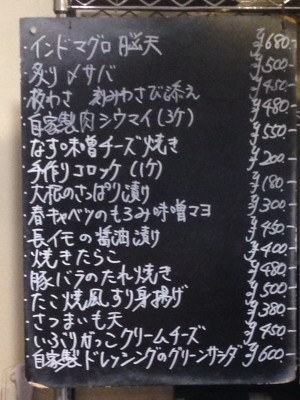 ・インドマグロ脳天 ¥680-
・炙り〆サバ ¥500-
・板わさ 刻みわさび添え ¥450-
・自家製肉シウマイ(3ケ) ¥480-
・なす味噌チーズ焼き ¥550-
・手作りコロッケ(1ケ) ¥200-
・大根のさっぱり漬け ¥180-
・春キャベツのもろみ味噌マヨ ¥300-
・長イモの醤油漬け ¥450-
・焼きたらこ ¥400-
・豚バラのたれ焼き ¥480-
・たこ焼風すり身揚げ ¥500-
・さつまいも天 ¥380-
・いぶりがっこクリームチーズ ¥450-
・自家製ドレッシングのグリーンサラダ ¥600-